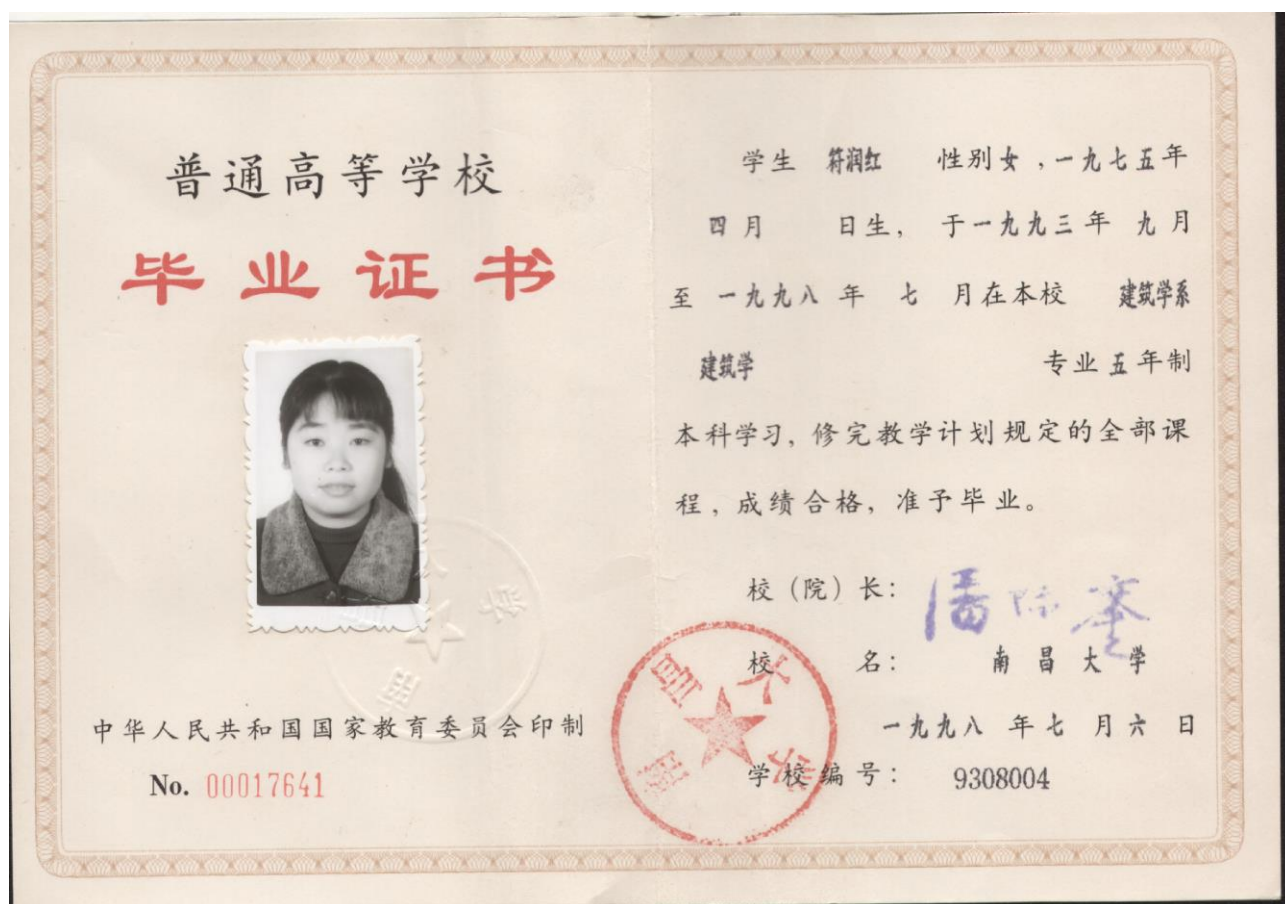 普通高等学校
毕业证书
中华人民共和国国家教育委员会印制
No. 00017641
学生 符润红 性别女，一九七五年
四月 日生，于一九九三年 九月
至 一九九八 年 七 月在本校 建筑学系
建筑学 专业五年制
本科学习，修完教学计划规定的全部课
程，成绩合格，准予毕业。
校（院）长： 潘际銮
校 名： 南昌大学
一九九八 年七 月六 日
学校编号： 9308004
南昌大学